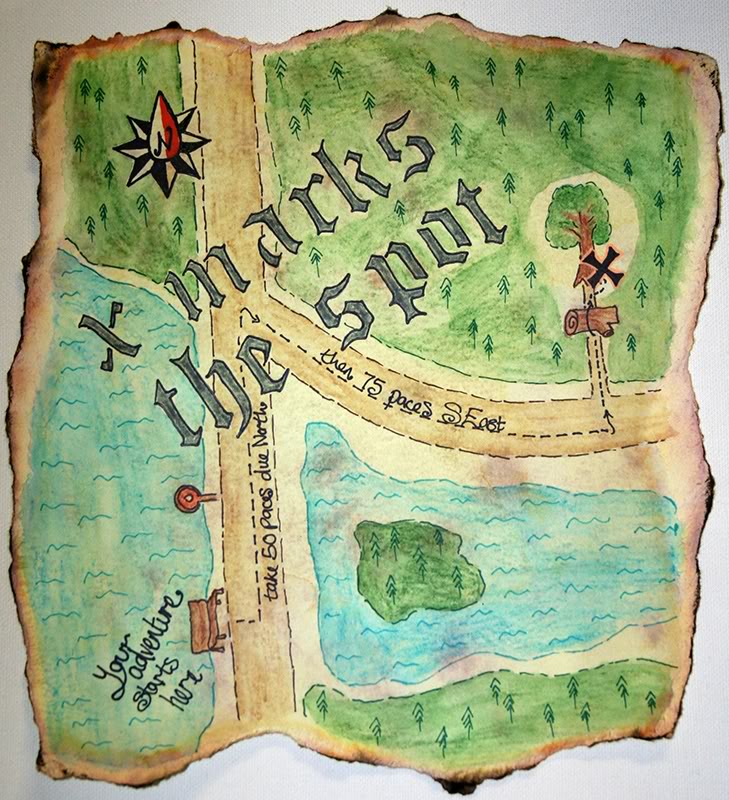 N
X marks
the spot
then 75 paces S.East
take 50 paces due North
Your
adventure
starts
here